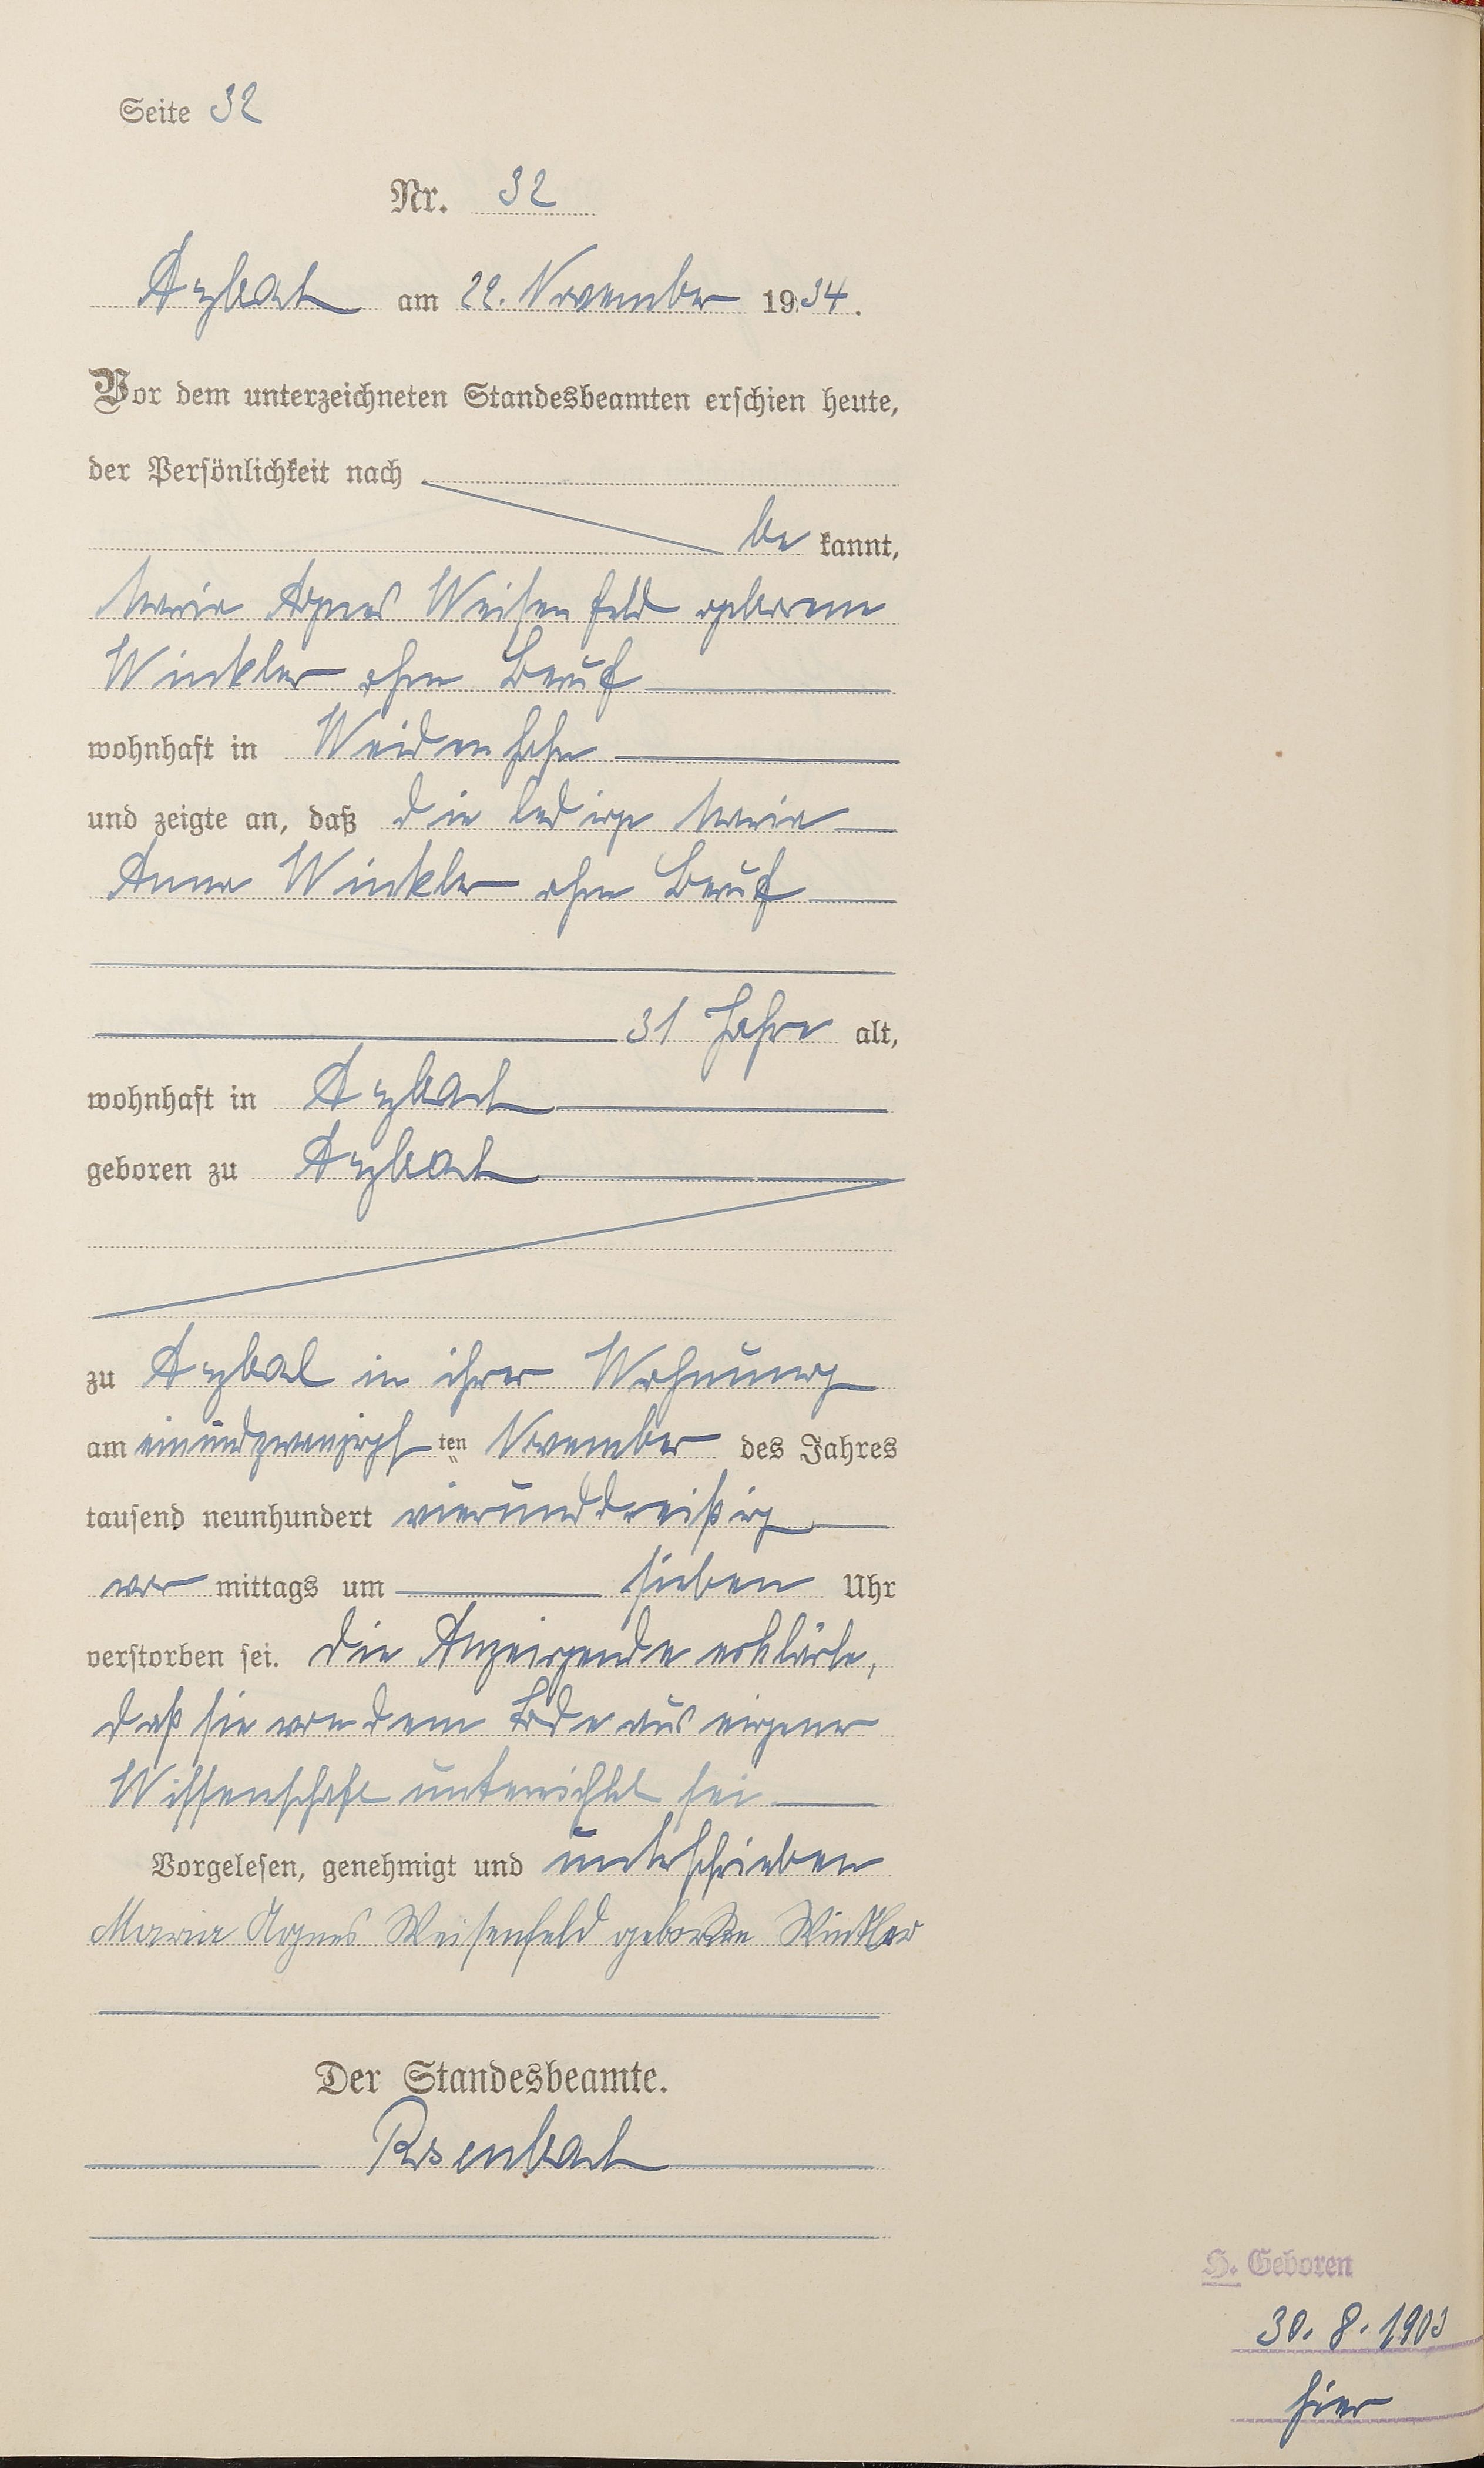 Seite 32
Nr. 32
Arzbach am 22. November 1934.
Vor dem unterzeichneten Standesbeamten erschien heute,
der Persönlichkeit nach
be kannt,
Maria Agnes Weisenfeld geborene
Winkler ohne Beruf
wohnhaft in Weidenhahn
und zeigte an, daß die ledige Maria
Anna Winkler ohne Beruf
31 Jahre alt,
wohnhaft in Arzbach
geboren zu Arzbach
zu Arzbach in ihrer Wohnung
am einundzwanzigsten November des Jahres
tausend neunhundert vierunddreißig
vor mittags um sieben Uhr
verstorben sei. Die Anzeigende erklärte,
daß sie von dem Tode aus eigener
Wissenschaft unterrichtet sei
Vorgelesen, genehmigt und unterschrieben
Maria Agnes Weisenfeld geborene Winkler
Der Standesbeamte.
Rosenbach
H. Geboren
30. 8. 1903
hier